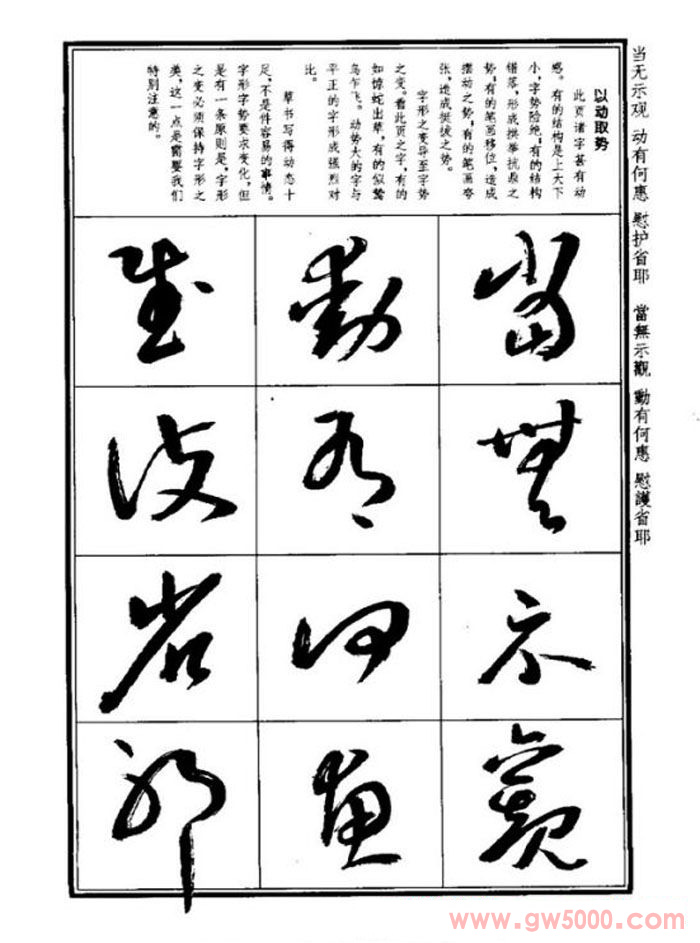 当无示观 动有何惠 慰护省耶 當無示觀 動有何惠 慰護省耶
以动取势
此页诸字甚有动
感。有的结构是上大下
小,字势险绝;有的结构
错落,形成拱举抗鼎之
势;有的笔画移位,造成
摆动之势;有的笔画夸
张,造成挺拔之势。
字形之变异至字势
之变。看此页之字,有的
如惊蛇出草,有的似鸷
鸟乍飞。动势大的字与
平正的字形成强烈对
比。
草书写得动态十
足,不是件容易的事情。
字形字势要求变化,但
是有一条原则是,字形
之变必须保持字形之
美,这一点是需要我们
特别注意的。
當無示觀
動有何惠
慰護省耶
www.gw5000.com